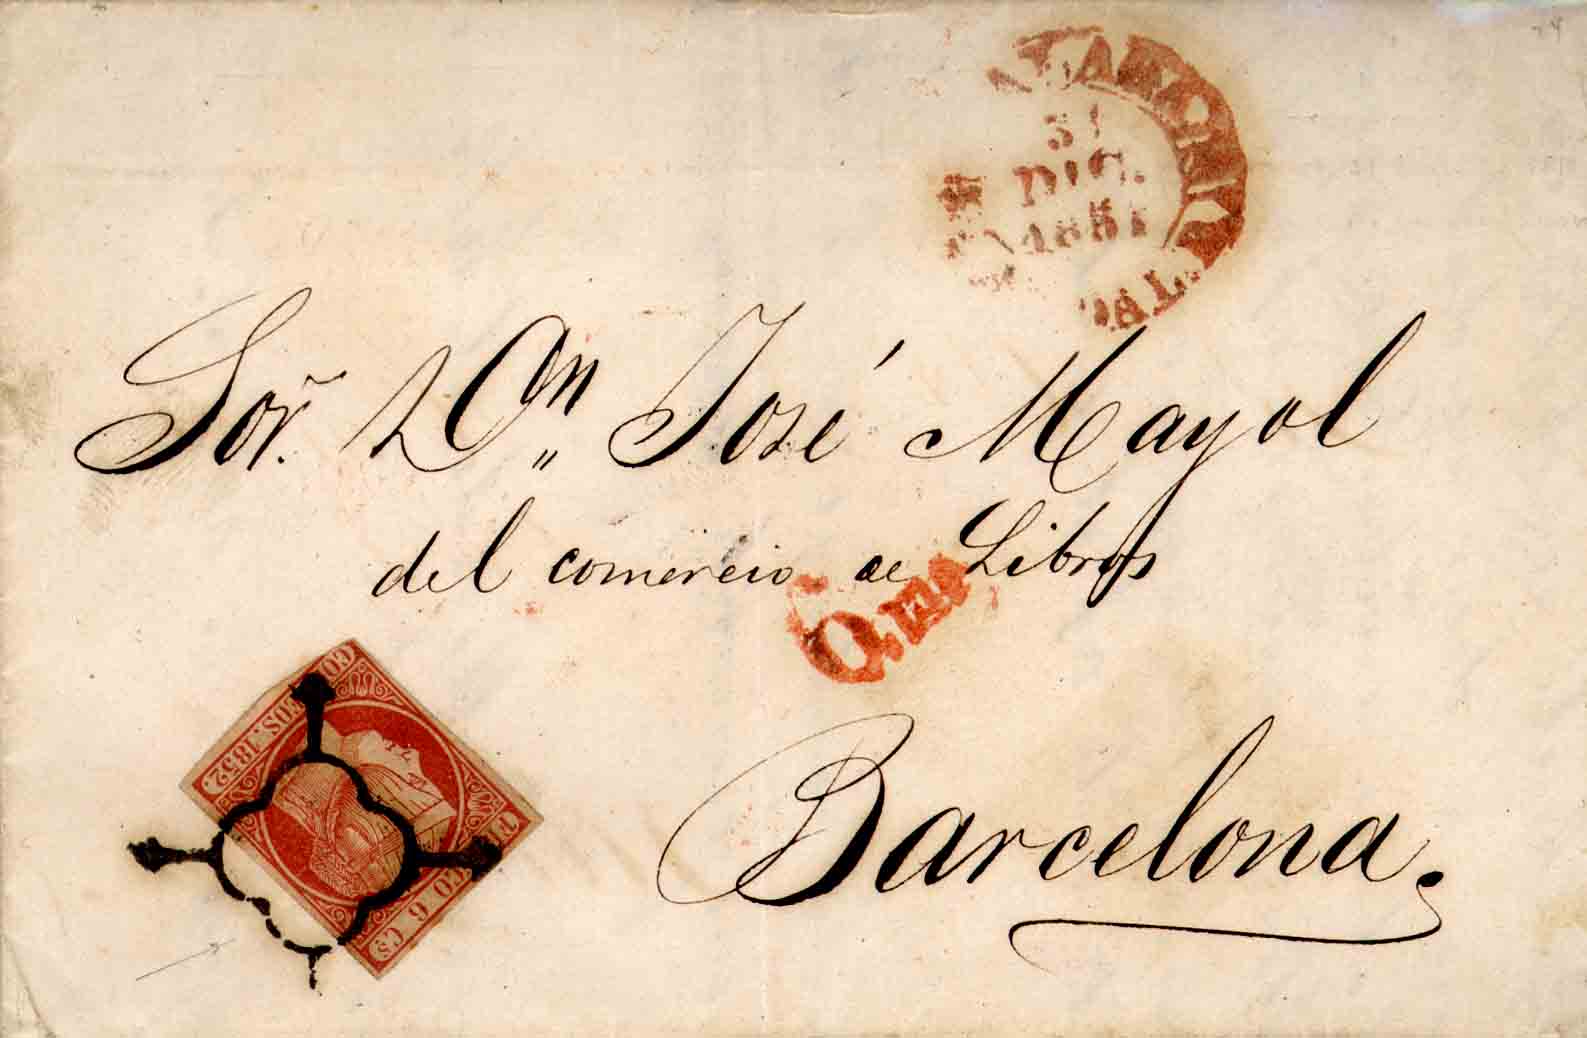 31
DIC.
1851
Sor. Dn. José Mayol
del comercio de Libros
Barcelona.
CORREOS. 1852.
FCO 6 Cs